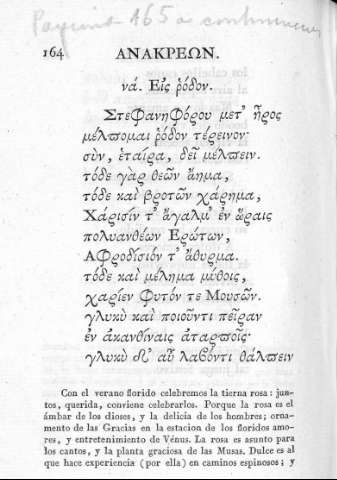 Pagina 165 a continuacion
164 ΑΝΑΚΡΕΩΝ.
νά. Εἰς ῥόδον.
Στεφανηφόρου μετ' ἦρος
μέλπομαι ῥόδον τέρεινον·
σὺν, ἑταίρα, δεῖ μέλπειν.
τόδε γὰρ θεῶν ἄημα,
τόδε καὶ βροτῶν χάρημα,
Χάρισίν τ' ἄγαλμ' ἐν ὥραις
πολυανθέων Ἐρώτων,
Ἀφροδίσιόν τ' ἄθυρμα.
τόδε καὶ μέλημα μύθοις,
χαρίεν φυτόν τε Μουσῶν.
γλυκὺ καὶ ποιοῦντι πεῖραν
ἐν ἀκανθίναις ἀταρποῖς·
γλυκὺ δ' αὖ λαβόντι θάλπειν
Con el verano florido celebremos la tierna rosa: jun-
tos, querida, conviene celebrarlos. Porque la rosa es el
ámbar de los dioses, y la delicia de los hombres; orna-
mento de las Gracias en la estacion de los floridos amo-
res, y entretenimiento de Vénus. La rosa es asunto para
los cantos, y la planta graciosa de las Musas. Dulce es al
que hace experiencia (por ella) en caminos espinosos; y